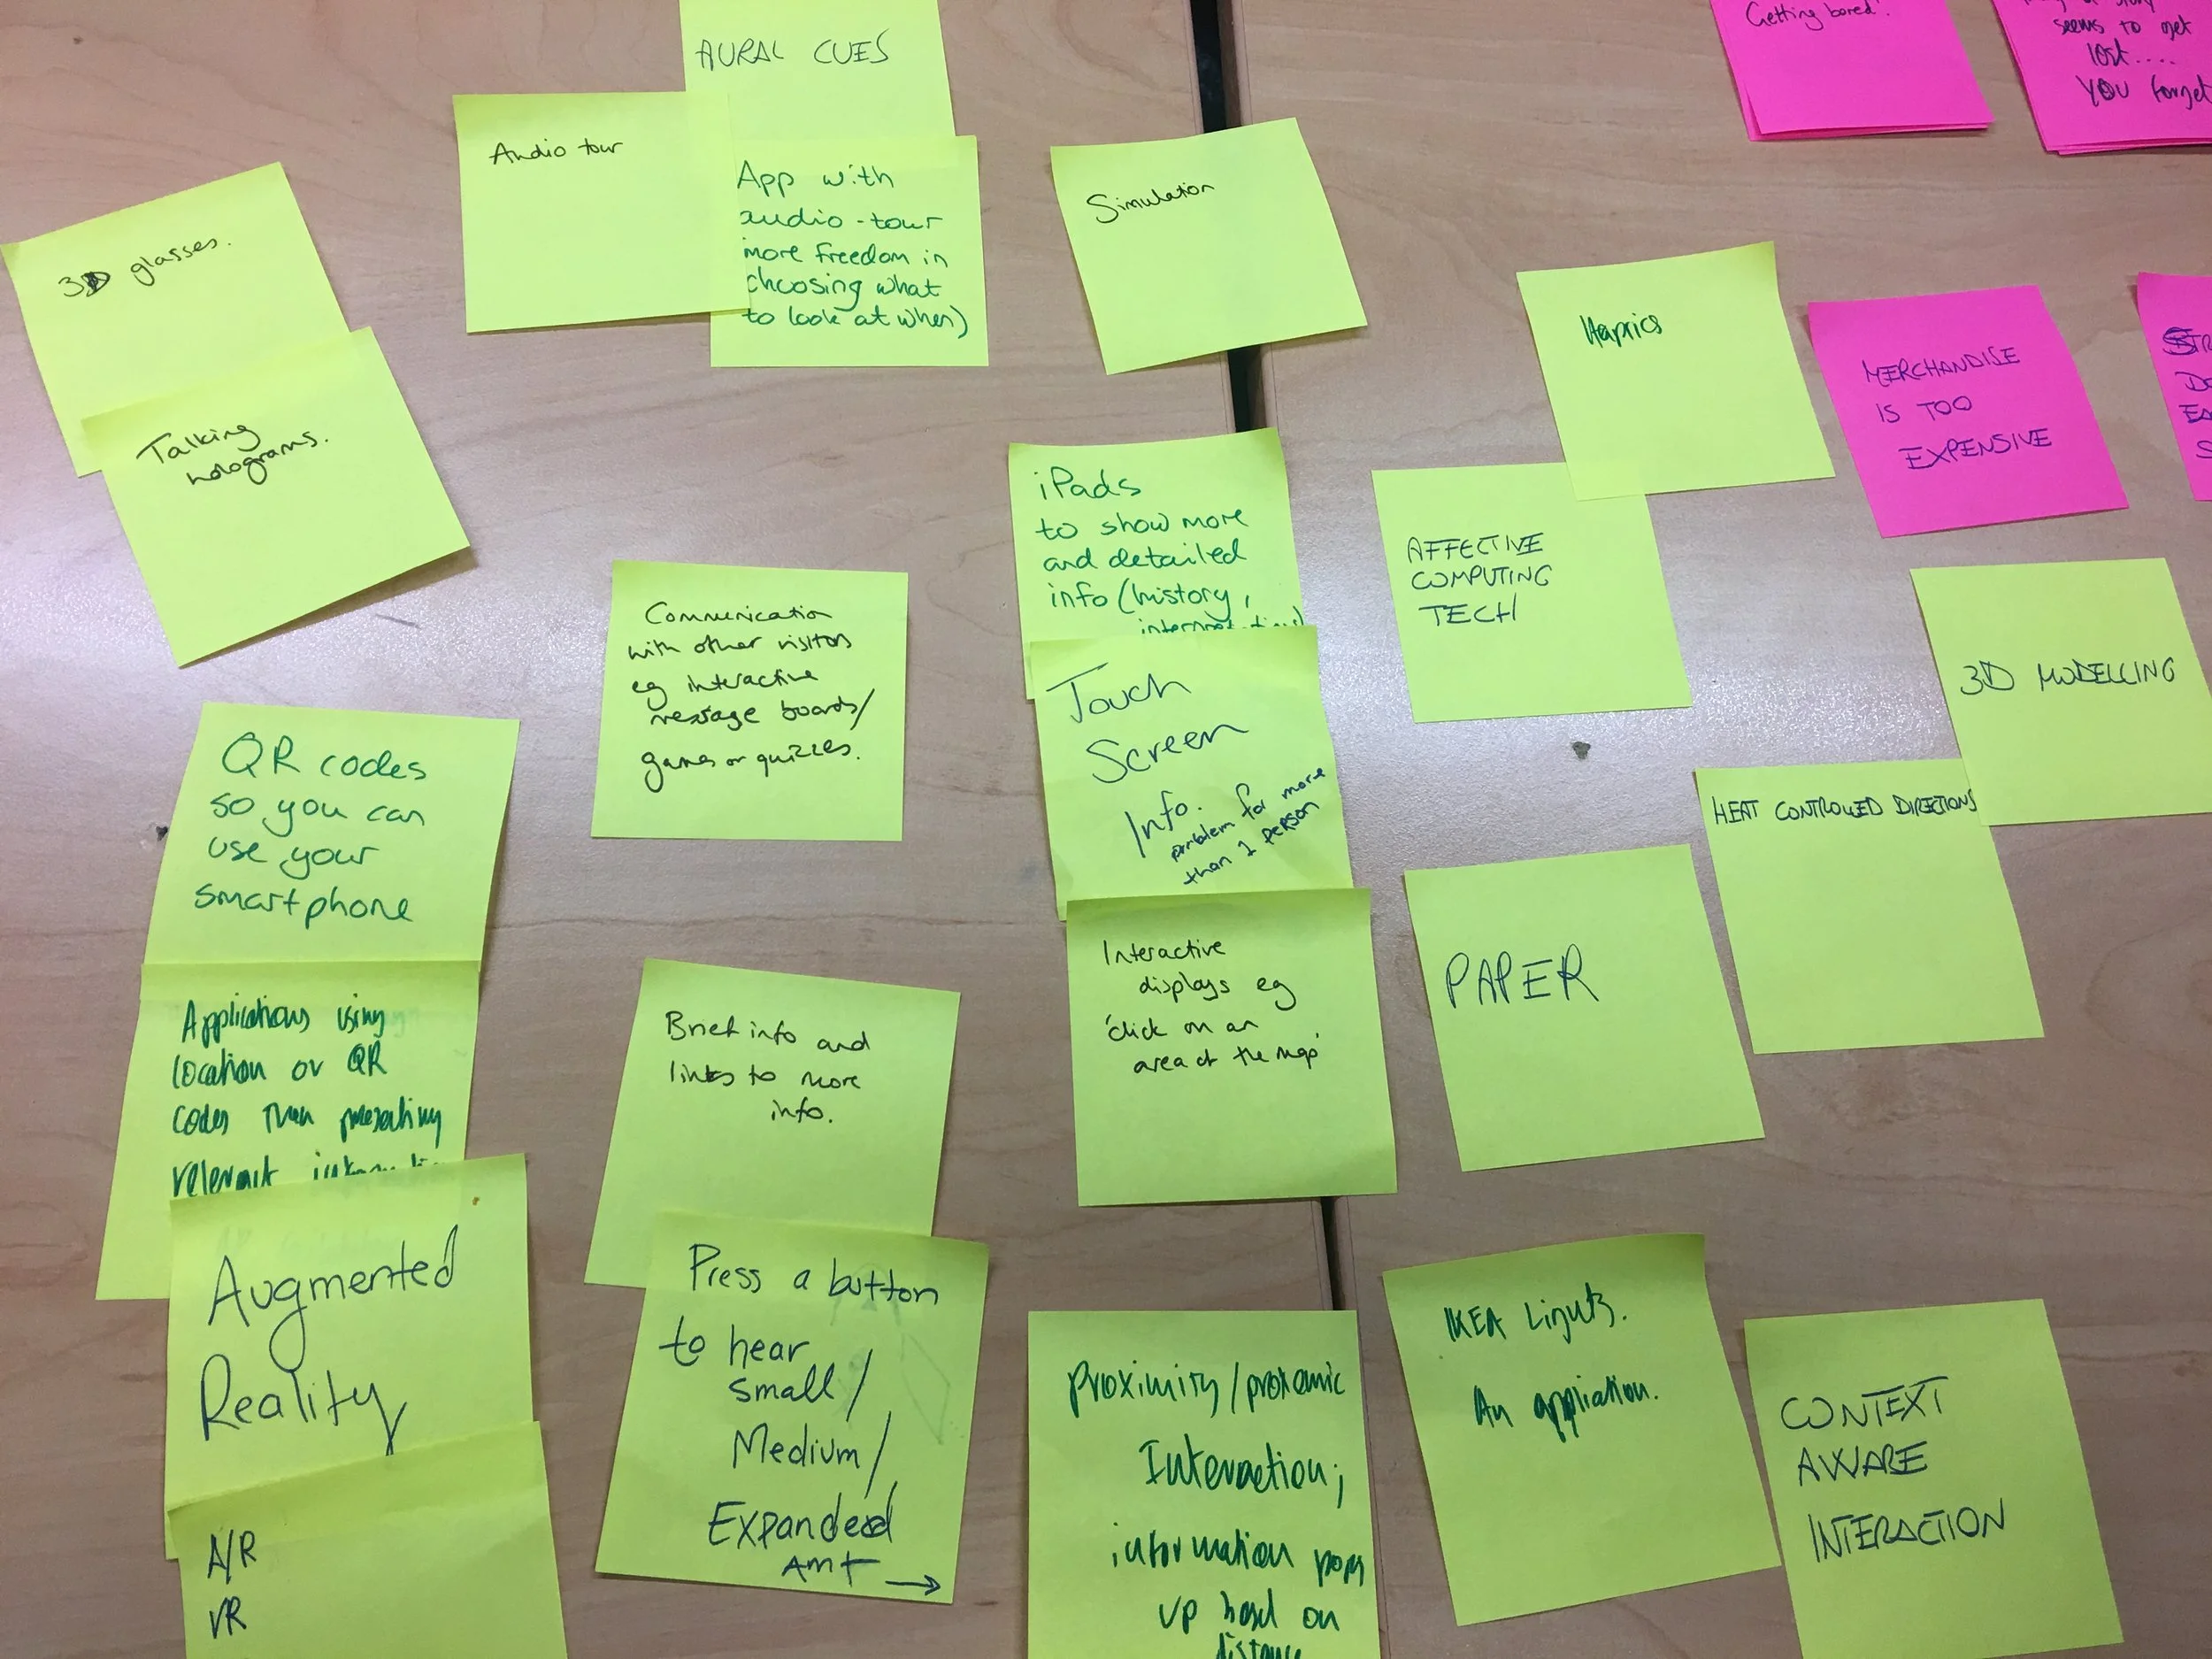 AURAL CUES
Audio tour
App with
audio-tour
more freedom in
choosing what
to look at when)
Simulation
Getting bored!
seems to get
lost....
YOU forget
3D glasses.
Talking
holograms.
Haptics
MERCHANDISE
IS TOO
EXPENSIVE
iPads
to show more
and detailed
info (history,
AFFECTIVE
COMPUTING
TECH
Communication
with other visitors
eg interactive
message boards/
games or quizzes.
Touch
Screen
Info.
problem for more
than 1 person
3D MODELLING
HEAT CONTROLLED DIRECTIONS
QR codes
so you can
use your
smartphone
Applications using
location or QR
codes then presenting
relevant
Brief info and
links to more
info.
Interactive
displays eg
'click on an
area of the map'
PAPER
Augmented
Reality
A/R
VR
Press a button
to hear
small/
Medium/
Expanded
Amt →
Proximity/proxemic
Interaction;
information pops
up based on
distance
IKEA Lights.
An application.
CONTEXT
AWARE
INTERACTION